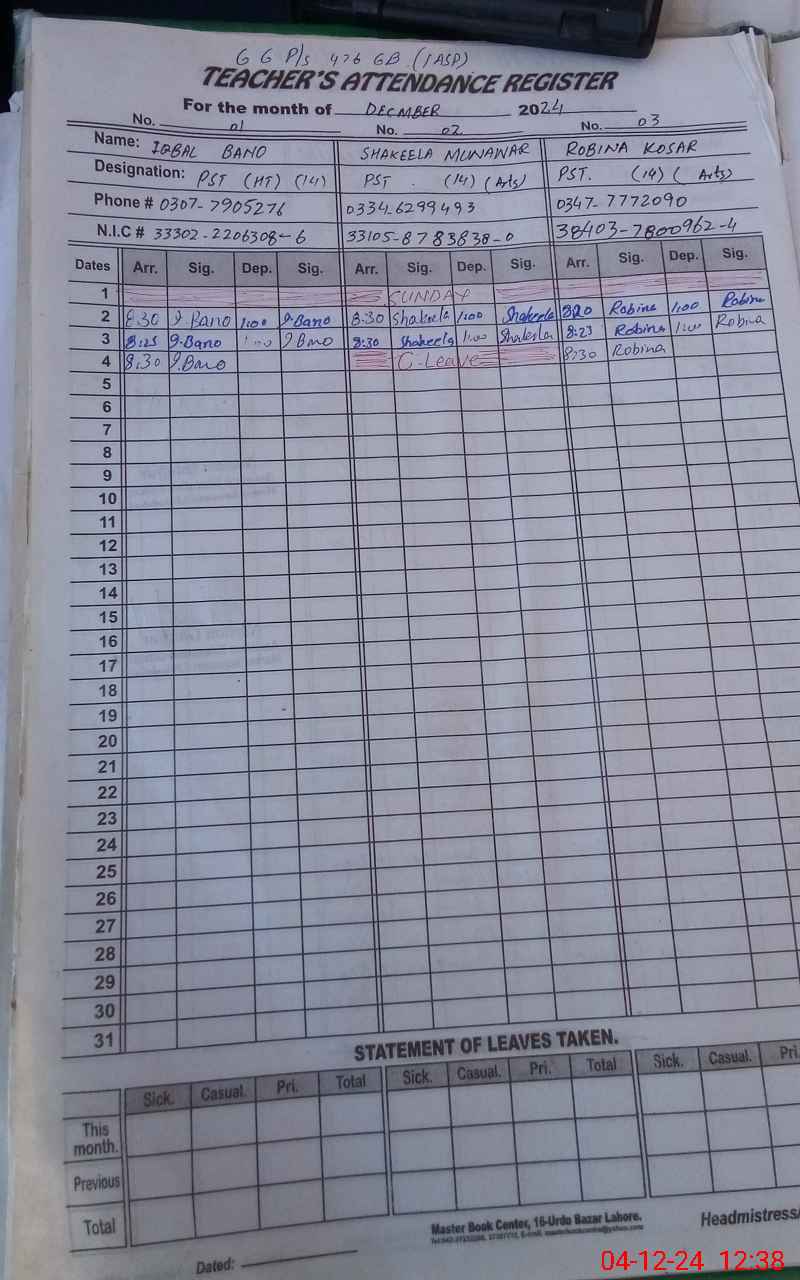 G G P/s 476 GB (SASP)
TEACHER'S ATTENDANCE REGISTER
For the month of DECMBER 2024
No. 01 No. 02 No. 03
Name: IQBAL BANO SHAKEELA MUNAWAR ROBINA KOSAR
Designation: PST (HT) (14) PST. (14) (Arts) PST. (14) (Arts)
Phone # 0307-7905276 0334-6299493 0347-7772090
N.I.C # 33302-2206308-6 33105-8783838-0 38403-7800962-4
Dates Arr. Sig. Dep. Sig. Arr. Sig. Dep. Sig. Arr. Sig. Dep. Sig.
1 SUNDAY
2 8:30 I.Bano 1:00 I.Bano 8:30 Shakeela 1:00 Shakeela 8:20 Robina 1:00 Robina
3 8:25 I.Bano 1:00 I.Bano 8:30 Shakeela 1:00 Shakeela 8:23 Robina 1:00 Robina
4 8:30 I.Bano C-Leave 8:30 Robina
5
6
7
8
9
10
11
12
13
14
15
16
17
18
19
20
21
22
23
24
25
26
27
28
29
30
31
STATEMENT OF LEAVES TAKEN.
Sick. Casual. Pri. Total Sick. Casual. Pri. Total Sick. Casual. Pri.
This month.
Previous
Total
Master Book Center, 16-Urdu Bazar Lahore.
Headmistress/
Dated:
04-12-24 12:38